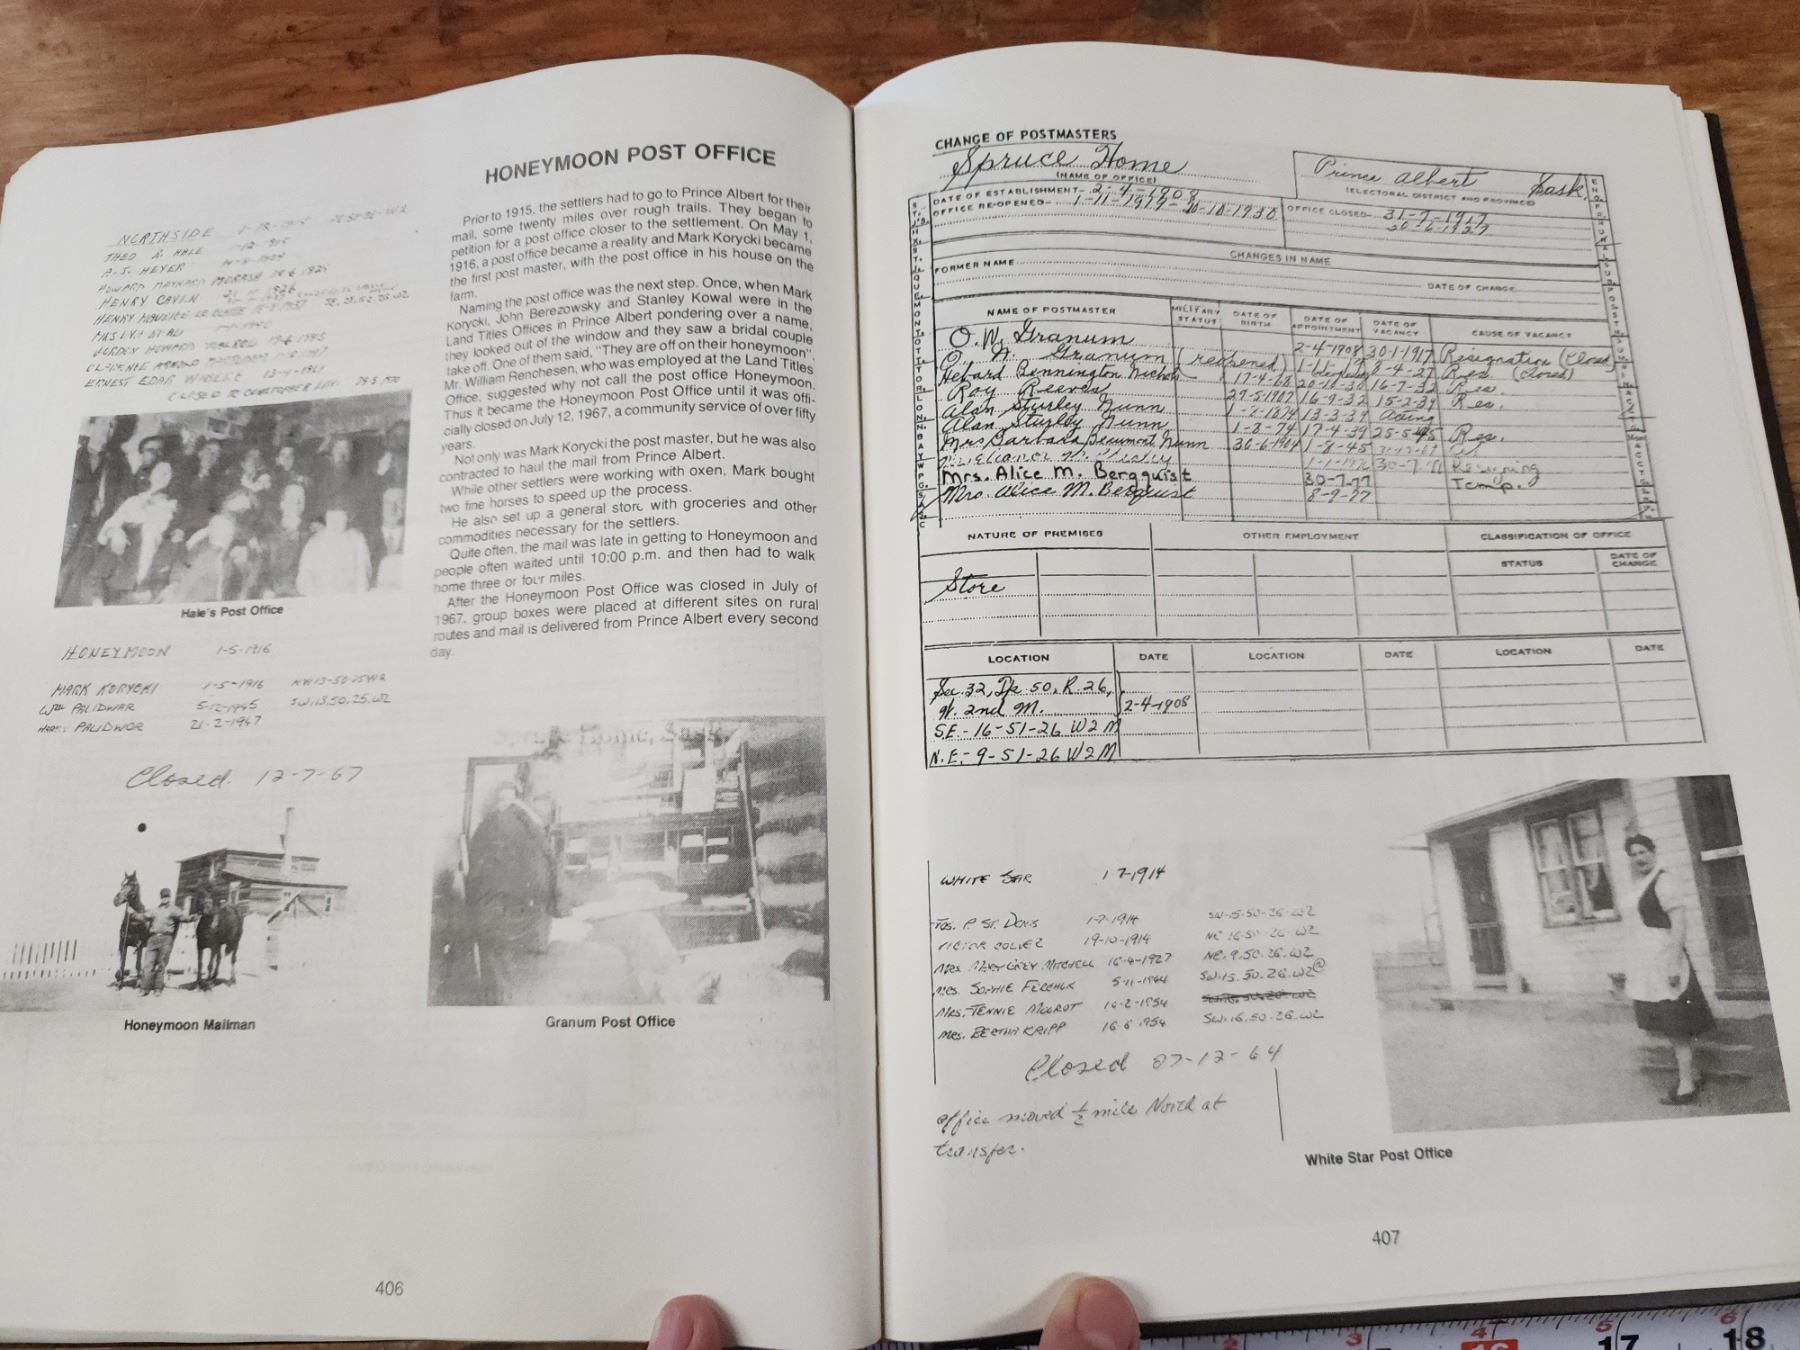 HONEYMOON POST OFFICE
NORTHSIDE
THEO A. HALE
A. J. HEYER
HENRY CAVEN
Hale's Post Office
HONEYMOON 1-5-1916
MARK KORYCKI 1-5-1916
Wm PALIDWAR 5-12-1945 SW.13.50.25.W2
PALIDWOR 21-2-1967
Closed. 12-7-67
Honeymoon Mailman
Prior to 1915, the settlers had to go to Prince Albert for their
mail, some twenty miles over rough trails. They began to
petition for a post office closer to the settlement. On May 1,
1916, a post office became a reality and Mark Korycki became
the first post master, with the post office in his house on the
farm.
Naming the post office was the next step. Once, when Mark
Korycki, John Berezowsky and Stanley Kowal were in the
Land Titles Offices in Prince Albert pondering over a name,
they looked out of the window and they saw a bridal couple
take off. One of them said, "They are off on their honeymoon".
Mr. William Renchesen, who was employed at the Land Titles
Office, suggested why not call the post office Honeymoon.
Thus it became the Honeymoon Post Office until it was offi-
cially closed on July 12, 1967, a community service of over fifty
years.
Not only was Mark Korycki the post master, but he was also
contracted to haul the mail from Prince Albert.
While other settlers were working with oxen, Mark bought
two fine horses to speed up the process.
He also set up a general store with groceries and other
commodities necessary for the settlers.
Quite often, the mail was late in getting to Honeymoon and
people often waited until 10:00 p.m. and then had to walk
home three or four miles.
After the Honeymoon Post Office was closed in July of
1967, group boxes were placed at different sites on rural
routes and mail is delivered from Prince Albert every second
day.
Granum Post Office
406
CHANGE OF POSTMASTERS
Spruce Home
(NAME OF OFFICE)
Prince Albert Sask.
(ELECTORAL DISTRICT AND PROVINCE)
DATE OF ESTABLISHMENT- 2-4-1908
OFFICE RE-OPENED- 1-11-1919- 20-10-1930
OFFICE CLOSED- 31-7-1917
30-6-1927
CHANGES IN NAME
FORMER NAME
DATE OF CHANGE
NAME OF POSTMASTER MILITARY STATUS DATE OF BIRTH DATE OF APPOINTMENT DATE OF VACANCY CAUSE OF VACANCY
O. W. Granum 2-4-1908 30-1-1917 Resignation (Closed)
O. N. Granum (reopened) 8-4-27 Res. (Closed)
Hebard Bennington Nichols 17-4-68 20-10-30 16-7-32 Res.
Roy Reeves 29-5-1907 16-9-32 15-2-39 Res.
Alan Sturley Nunn 1-8-1874 13-3-39 Acting
Alan Sturley Nunn 1-8-74 17-4-39 25-5-45 Res.
Mrs Barbara Beaumont Nunn 30-6-1904 1-8-45
Resigning
Mrs. Alice M. Bergquist 30-7-77 Temp.
Mrs. Alice M. Bergquist 8-9-77
NATURE OF PREMISES OTHER EMPLOYMENT CLASSIFICATION OF OFFICE
STATUS DATE OF CHANGE
Store
LOCATION DATE LOCATION DATE LOCATION DATE
Sec. 32, Tp. 50, R. 26,
W. 2nd M. 2-4-1908
S.E.- 16-51-26 W2M
N.E.- 9-51-26 W2M
WHITE STAR 1-7-1914
Jos. P. St. Denis 1-7-1914 SW-15-50-26-W2
VICTOR 19-10-1914 NE 16-50-26-W2
Mrs. MARY GREY MITCHELL 16-4-1927 NE.9.50.26.W2
Mrs. SOPHIE 5-11-1944 SW.15.50.26.W2
Mrs. JENNIE 16-2-1954
Mrs. BERTHA KRIPP 16-6-1954 SW.16.50.26.W2
Closed 07-12-64
Office moved ½ mile North at
transfer.
White Star Post Office
407
3
4
5
6
16
17
18